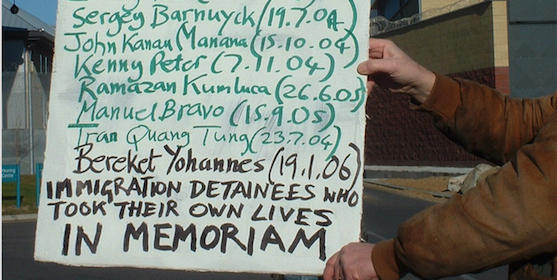 Sergey Barnuyck (19.7.04)
John Kanau Manana (15.10.04)
Kenny Peter (7.11.04)
Ramazan Kumluca (26.6.05)
Manuel Bravo (15.9.05)
Tran Quang Tung (23.7.04)
Bereket Yohannes (19.1.06)
IMMIGRATION DETAINEES WHO
TOOK THEIR OWN LIVES
IN MEMORIAM